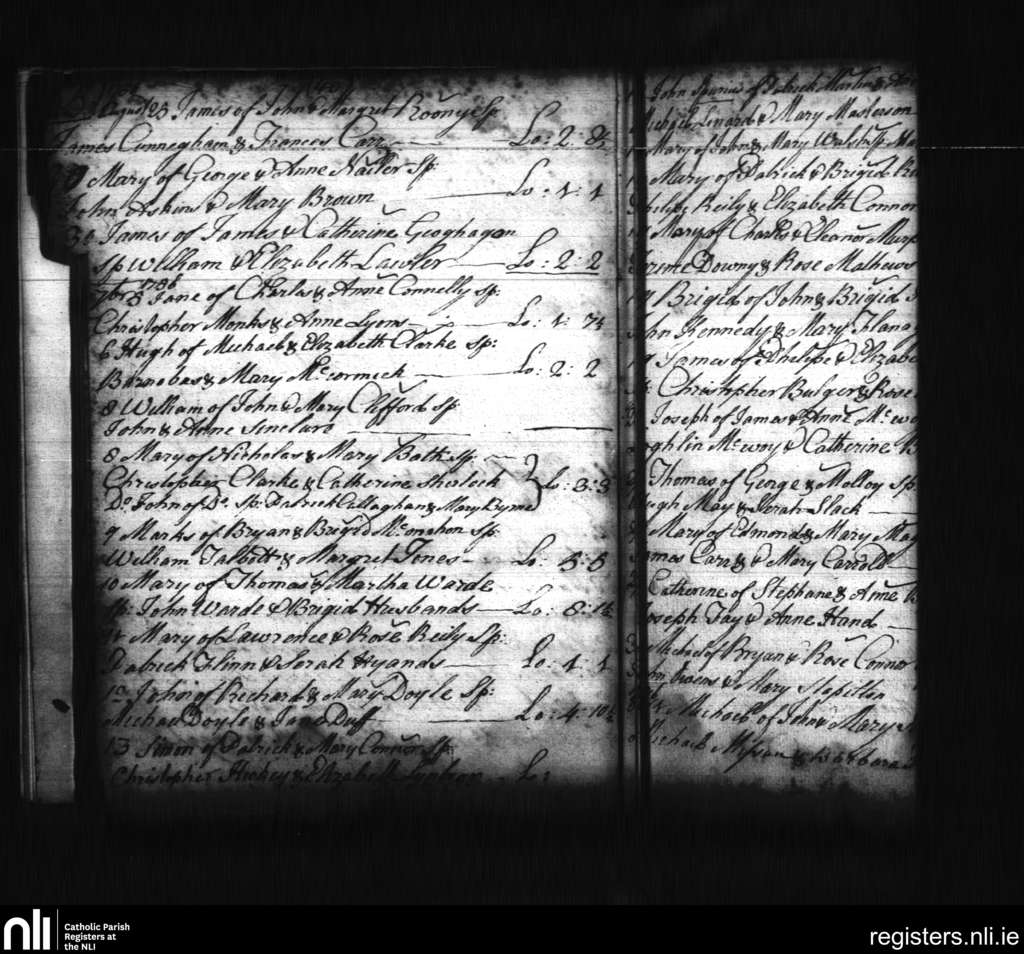 August 25 James of John & Margret Roony Sp
James Cunnegham & Frances Carr Lo: 2: 8½
Mary of George & Anne Nailer Sp:
John Askins & Mary Brown Lo: 1: 1
30 James of James & Catherine Geoghagan
Sp William & Elizabeth Lawler Lo: 2: 2
1786
7br 3 Jane of Charles & Anne Connelly Sp:
Christopher Monks & Anne Lyons Lo: 1: 7½
6 Hugh of Michael & Elizabeth Clarke Sp:
Barnabas & Mary Mccormick Lo: 2: 2
8 William of John & Mary Clifford Sp
John & Anne Sinclare
8 Mary of Nicholas & Mary Bath Sp:
Christopher Clarke & Catherine Sherlock Lo: 3: 3
Do John of Do Sp: Patrick Callaghan & Mary Byrne
9 Marks of Bryan & Brigid Mcmahon Sp:
William Talbott & Margret Jones Lo: 5: 5
10 Mary of Thomas & Martha Warde
Sp: John Warde & Brigid Husbands Lo: 8: 1½
11 Mary of Lawrence & Rose Reily Sp:
Patrick Flinn & Sarah Hyands Lo: 1: 1
12 John of Richard & Mary Doyle Sp:
Michael Doyle & Jane Duff Lo: 4: 10½
13 Simon of Patrick & Mary Connor Sp
Christopher Hickey & Elizabeth Lo:
John of Patrick Martin &
Michael Linard & Mary Masterson
Mary of John & Mary Walsh Sp
Mary of Patrick & Brigid
Philip Reily & Elizabeth Connor
Mary of Charles & Eleanor Murp
Downy & Rose Mathews
Brigid of John & Brigid
John Kennedy & Mary Flanag
James of Phelipe & Elizabe
Christopher Bulger & Rose
Joseph of James & Anne Mcwo
Loghlin Mcwoy & Catherine
Thomas of George & Molloy Sp
Hugh May & Sarah Slack
Mary of Edmond & Mary Mag
James Carr & Mary Carroll
Catherine of Stephane & Anne
Joseph Jay & Anne Hand
Michael of Bryan & Rose Connor
John Owens & Mary Stapilton
Michael of John & Mary
Michael & Barbara
nli
Catholic Parish
Registers at
the NLI
registers.nli.ie